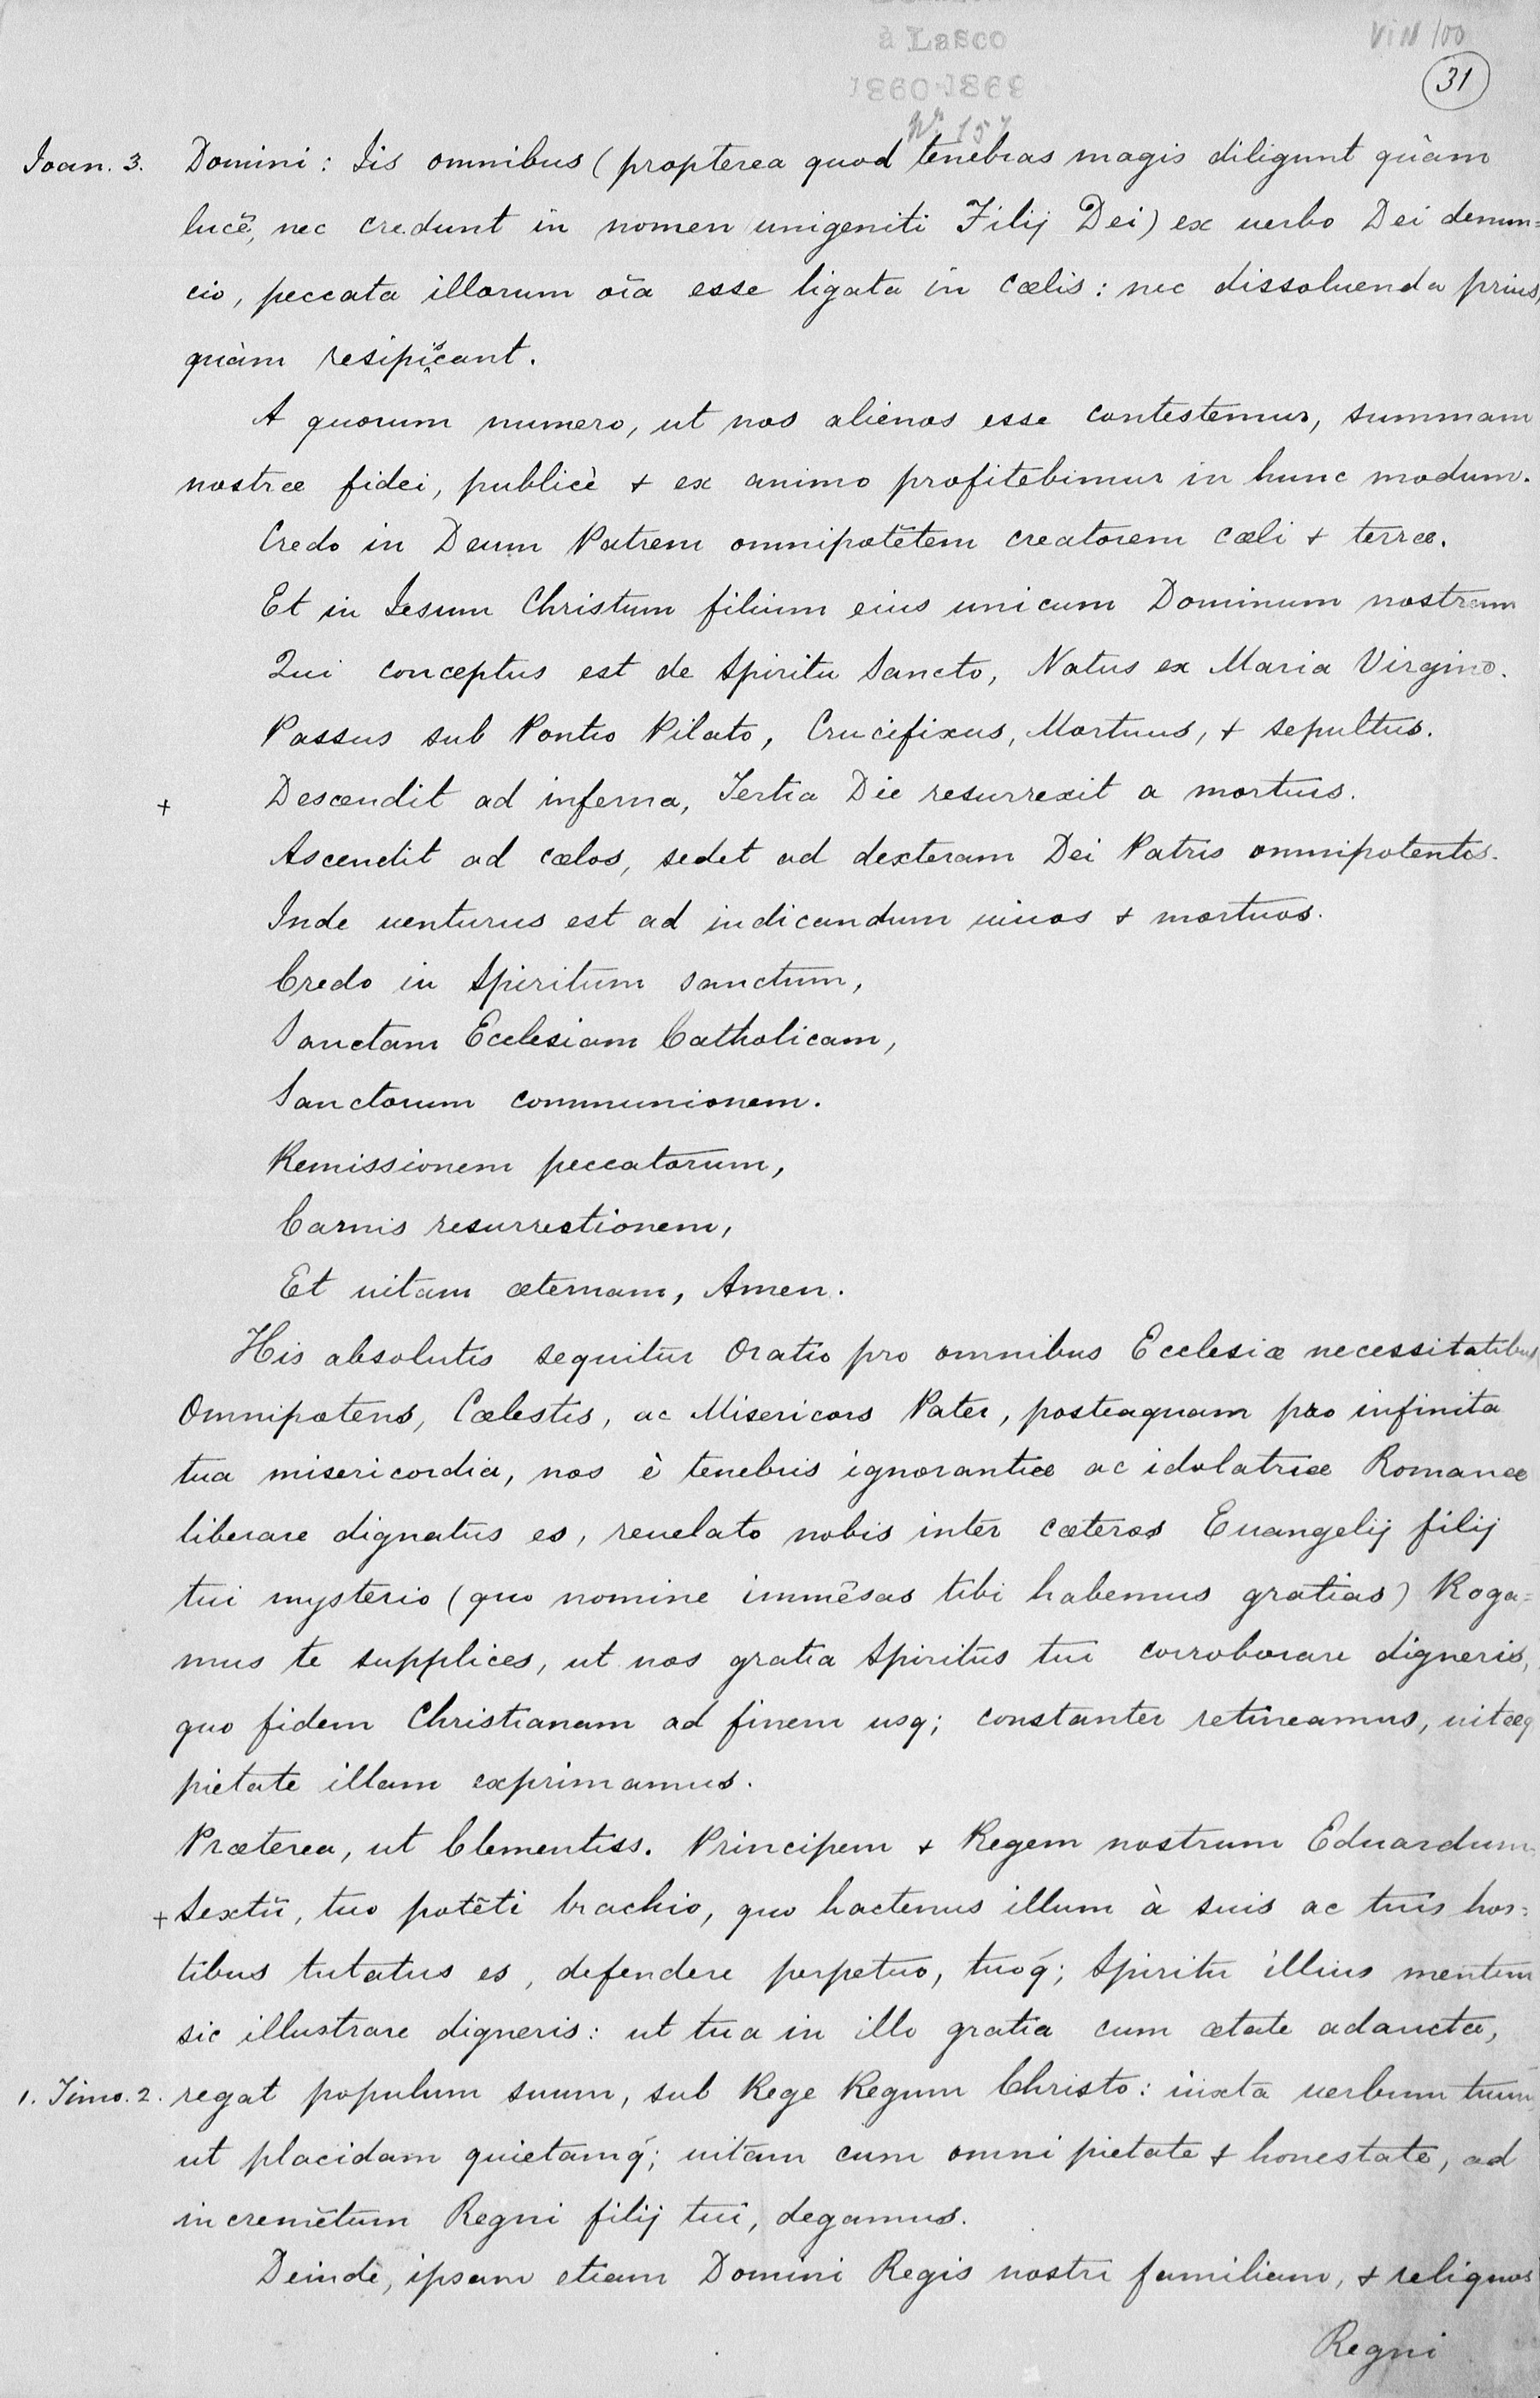 à Lasco
VIII 100
1860-1869
31
No. 157
Ioan. 3. Domini: Iis omnibus (propterea quod tenebras magis diligunt quàm
lucē, nec credunt in nomen unigeniti Filij Dei) ex uerbo Dei denun=
cio, peccata illorum oīa esse ligata in cœlis: nec dissoluenda prius,
quàm resipiscant.
A quorum numero, ut nos alienos esse contestemur, summam
nostræ fidei, publicè + ex animo profitebimur in hunc modum.
Credo in Deum Patrem omnipotētem creatorem cœli + terræ.
Et in Iesum Christum filium eius unicum Dominum nostrum
Qui conceptus est de Spiritu Sancto, Natus ex Maria Virgine.
Passus sub Pontio Pilato, Crucifixus, Mortuus, + sepultus.
+ Descendit ad inferna, Tertia Die resurrexit a mortuis.
Ascendit ad cœlos, sedet ad dexteram Dei Patris omnipotentis.
Inde uenturus est ad iudicandum uiuos + mortuos.
Credo in Spiritum sanctum,
Sanctam Ecclesiam Catholicam,
Sanctorum communionem.
Remissionem peccatorum,
Carnis resurrectionem,
Et uitam æternam, Amen.
His absolutis sequitur Oratio pro omnibus Ecclesiæ necessitatibus
Omnipotens, Cœlestis, ac Misericors Pater, posteaquam pro infinita
tua misericordia, nos è tenebris ignorantiæ ac idolatriæ Romanæ
liberare dignatus es, reuelato nobis inter cæteros Euangelij filij
tui mysterio (quo nomine immēsas tibi habemus gratias) Roga=
mus te supplices, ut nos gratia Spiritus tui corroborare digneris,
quo fidem Christianam ad finem usq; constanter retineamus, uitæq
pietate illam exprimamus.
Præterea, ut Clementiss. Principem + Regem nostrum Eduardum
+ Sextū, tuo potēti brachio, quo hactenus illum à suis ac tuis hos=
tibus tutatus es, defendere perpetuo, tuoq́; Spiritu illius mentem
sic illustrare digneris: ut tua in illo gratia cum ætate adaucta,
1. Timo. 2. regat populum suum, sub Rege Regum Christo: iuxta uerbum tuum
ut placidam quietamq́; uitam cum omni pietate + honestate, ad
incremētum Regni filij tui, degamus.
Deinde, ipsam etiam Domini Regis nostri familiam, + reliquos
Regni